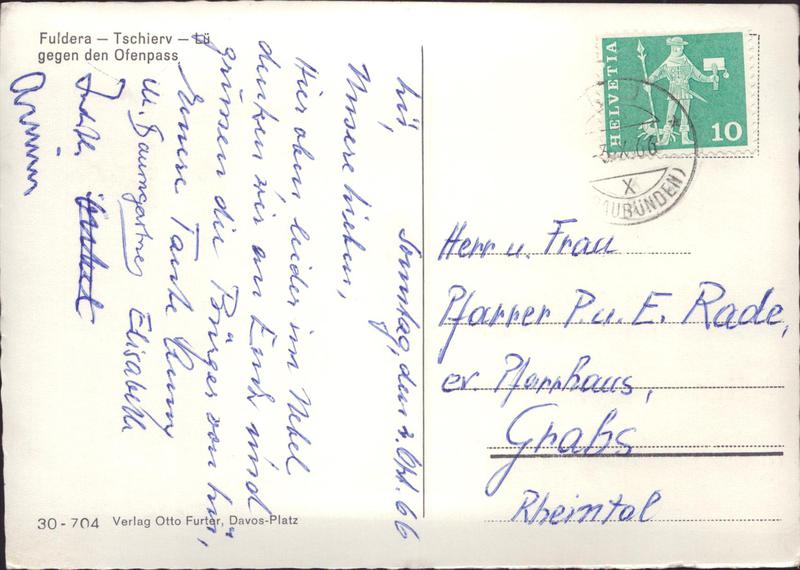 Fuldera — Tschierv — Lü
gegen den Ofenpass
HELVETIA
10
X.66
X
(GRAUBÜNDEN)
Lü, Sonntag, den 2. Okt. 66
Unsere Lieben,
Hier oben leider im Nebel
denken wir an Euch und
grüssen die Bürger von hür,
Eurere Tante Anny
M. Baumgartner Elisabeth
Judith
Armin
Herr u. Frau
Pfarrer P. u. E. Rade,
ev Pfarrhaus,
Grabs
Rheintal
30 - 704 Verlag Otto Furter, Davos-Platz